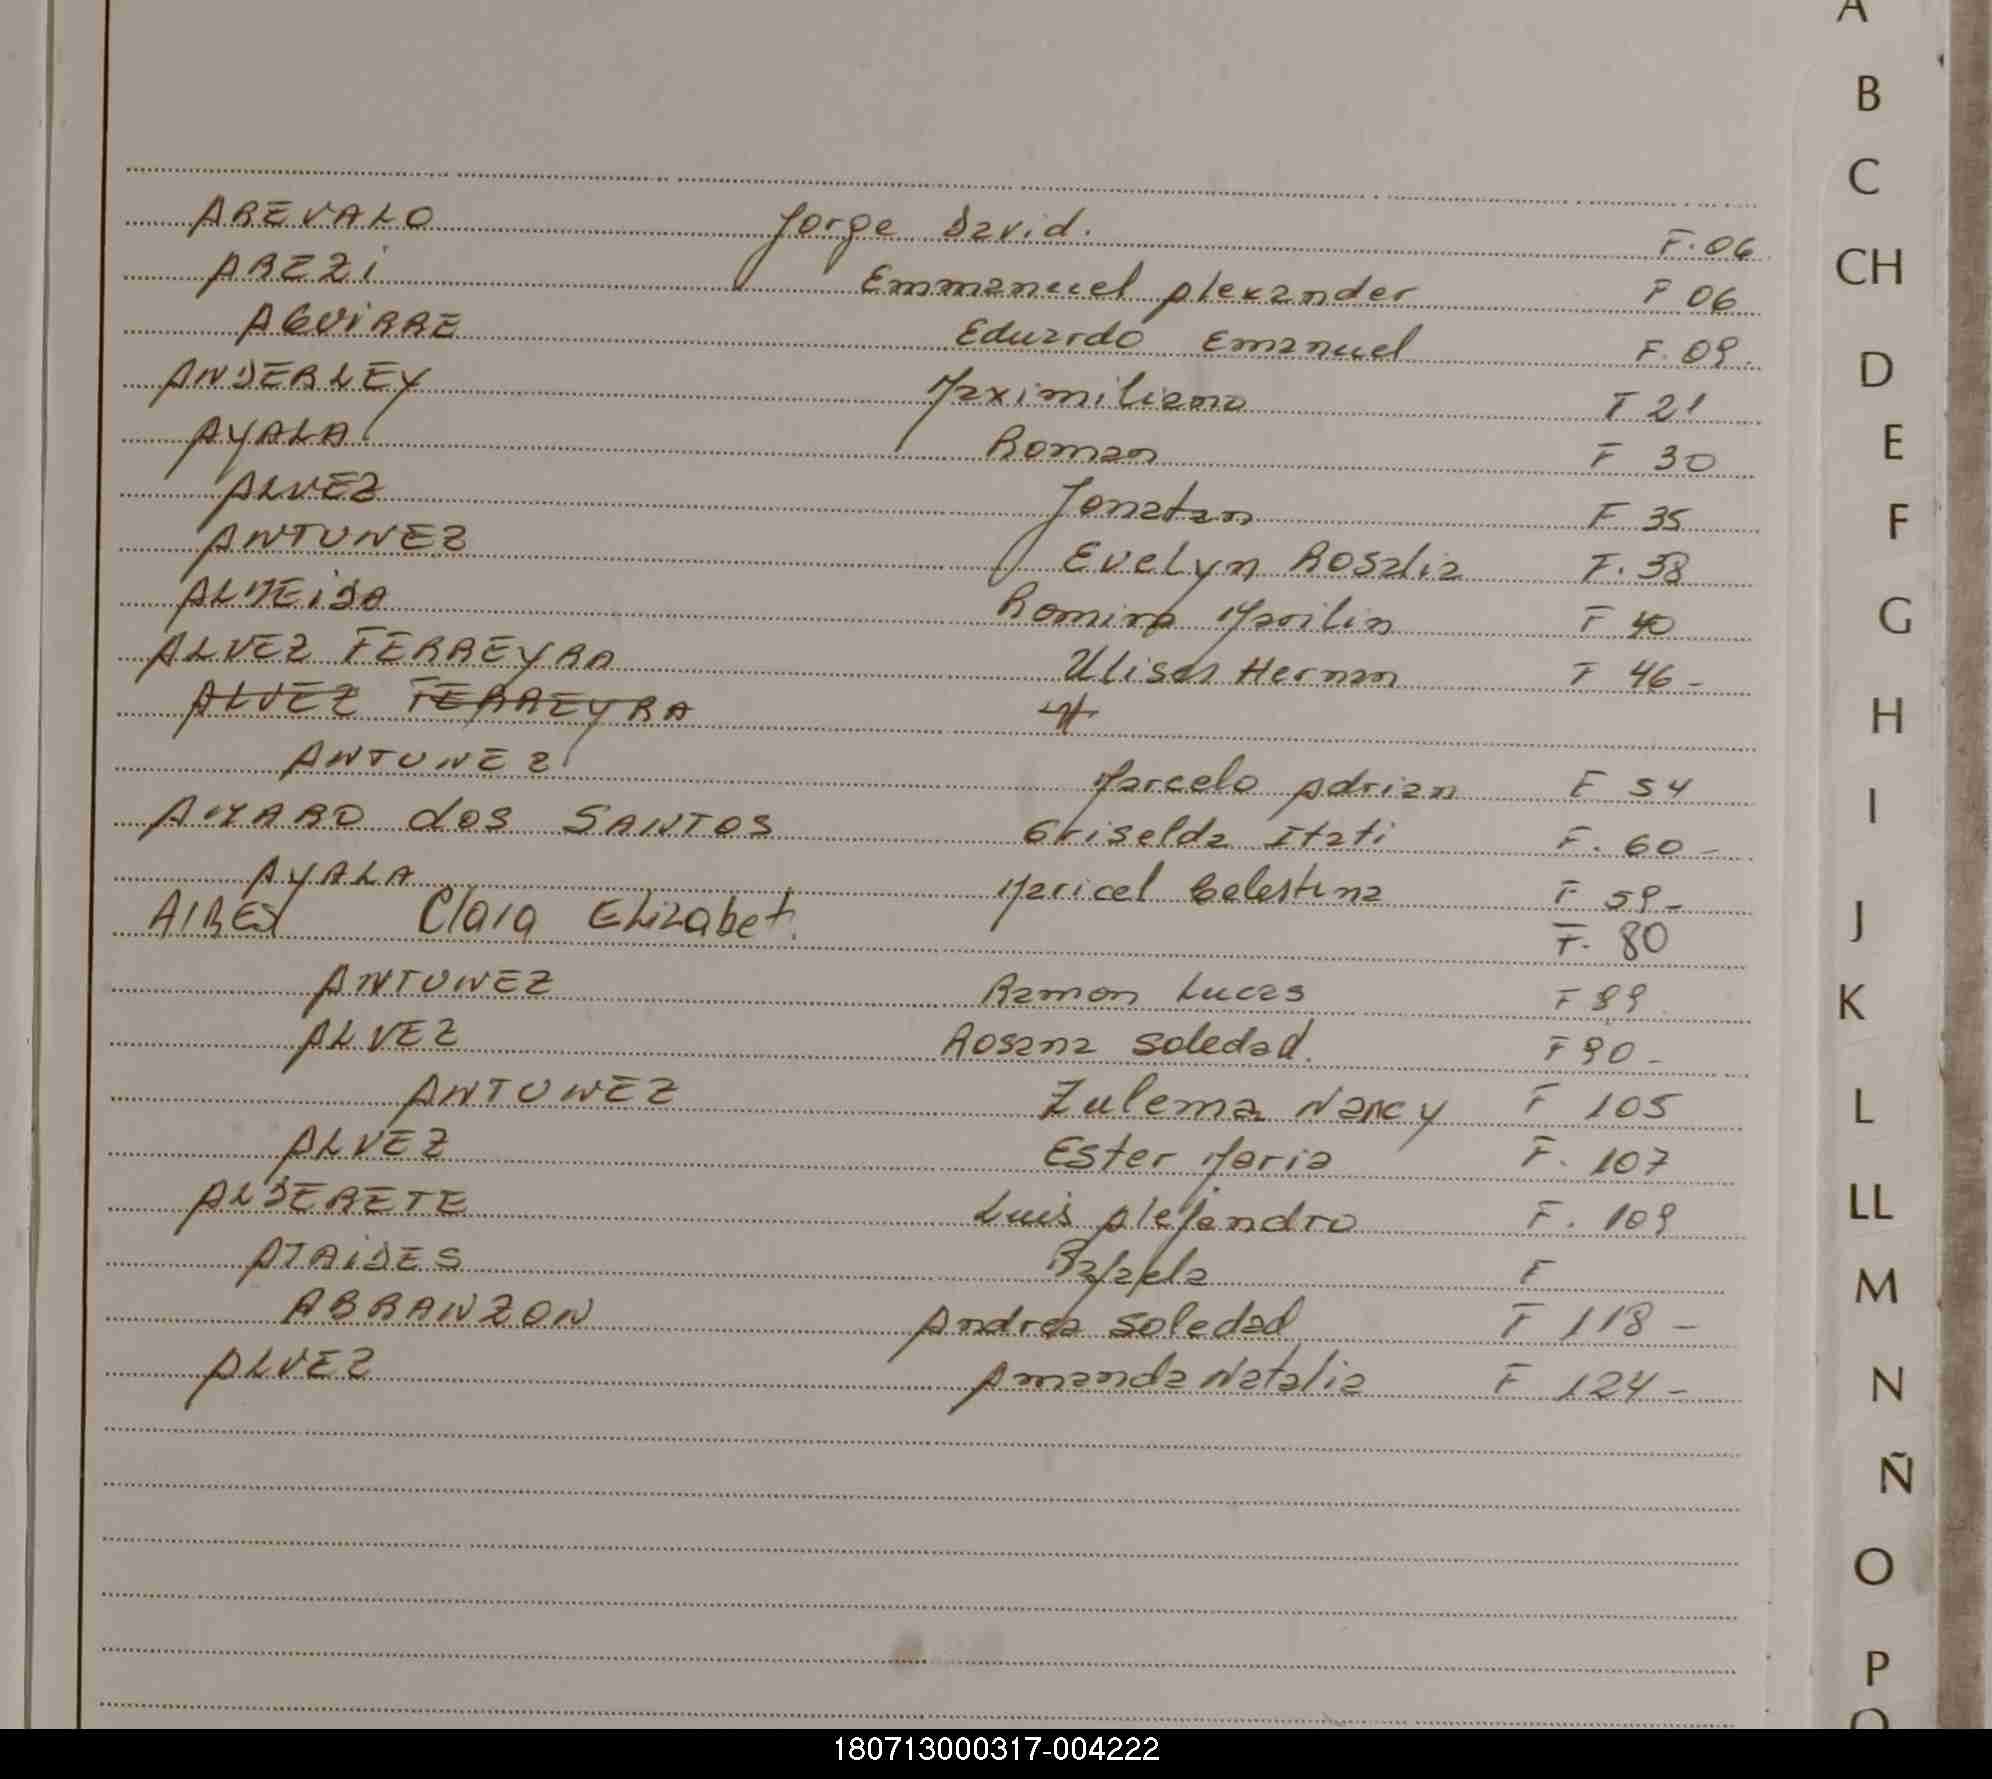 A
B
C
CH
D
E
F
G
H
I
J
K
L
LL
M
N
Ñ
O
P
Q
AREVALO Jorge David. F. 06
AREZI Emmanuel Alexander F 06
AGUIRRE Eduardo Emanuel F. 09.
ANDERLEY Maximiliano F 21
AYALA Roman F 30
ALVEZ Jonatan F 35
ANTUNEZ Evelyn Rosalia F. 38
ALMEIDA Romina Marilin F 40
ALVEZ FERREYRA Ulises Hernan F 46-
ALVEZ FERREYRA
ANTUNEZ Marcelo Adrian F 54
AMARO dos SANTOS Griselda Itati F. 60-
AYALA Maricel Celestina F 59-
AIRES Clara Elizabet. F. 80
ANTUNEZ Ramon Lucas F 89
ALVEZ Rosana Soledad. F 90-
ANTUNEZ Zulema Nancy F 105
ALVEZ Ester Maria F. 107
ALDERETE Luis Alejandro F. 109
ATAIDES Rafaela F
ABRANZON Andrea Soledad F 118-
ALVEZ Amanda Natalia F 124-
180713000317-004222